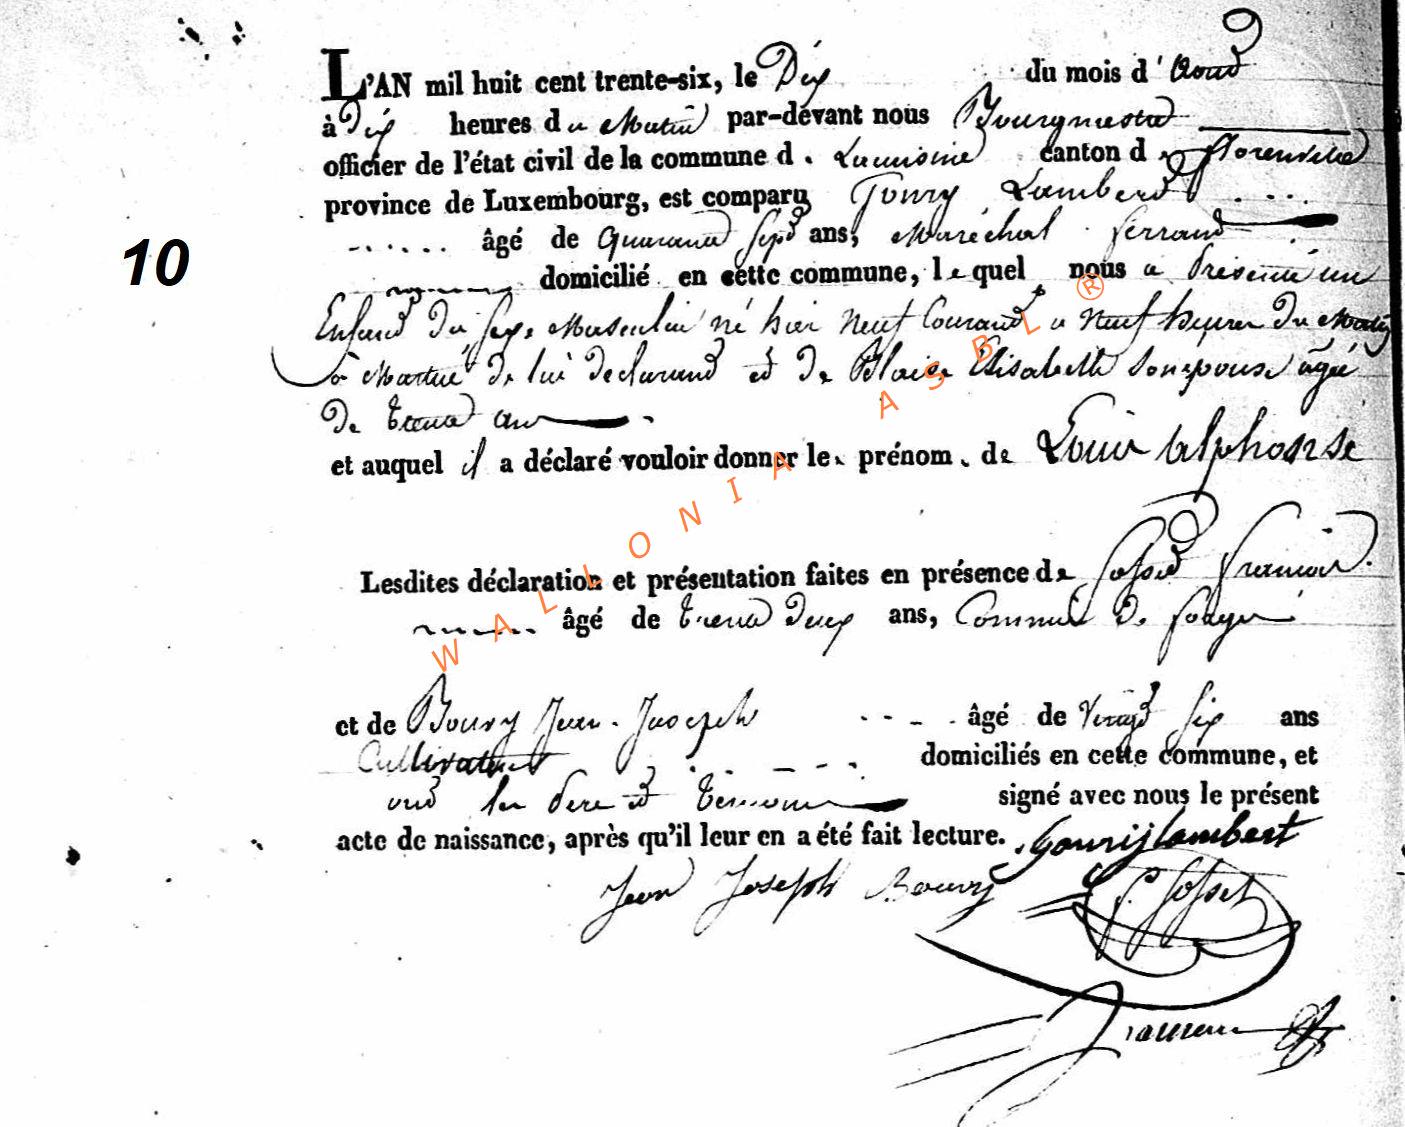 L'AN mil huit cent trente-six, le Dix du mois d'Aoud
à Dix heures du Matin par-devant nous Bourgmestre
officier de l'état civil de la commune d. Lacuisine canton d. florenville
province de Luxembourg, est comparu Goury Lambert
10
âgé de Quarante sept ans, Maréchal ferrant
domicilié en cette commune, lequel nous a présenté un
Enfand du sexe Masculin né hier neuf Courand a neuf heures du Matin
de lui declarand et de Blaise Elisabeth son epouse âgée
De trente ans
et auquel il a déclaré vouloir donner les prénoms de Louis alphonse
Lesdites déclaration et présentation faites en présence de fosset francois
âgé de trente deux ans, Commis De
et de Bouvy Jean-Joseph âgé de Vingt Six ans
Cultivateur domiciliés en cette commune, et
ond les Pere et temoins signé avec nous le présent
acte de naissance, après qu'il leur en a été fait lecture. Gourij lambert
Jean Joseph Bouvy f. fosset
WALLONIA ASBL ®